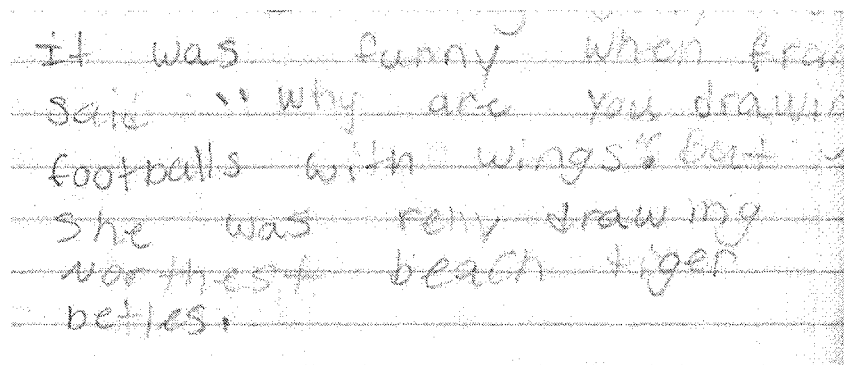 it was funny when fran
said "why are you drawin
footballs with wings". But
she was rely drawing
northest beach tiger
betles.